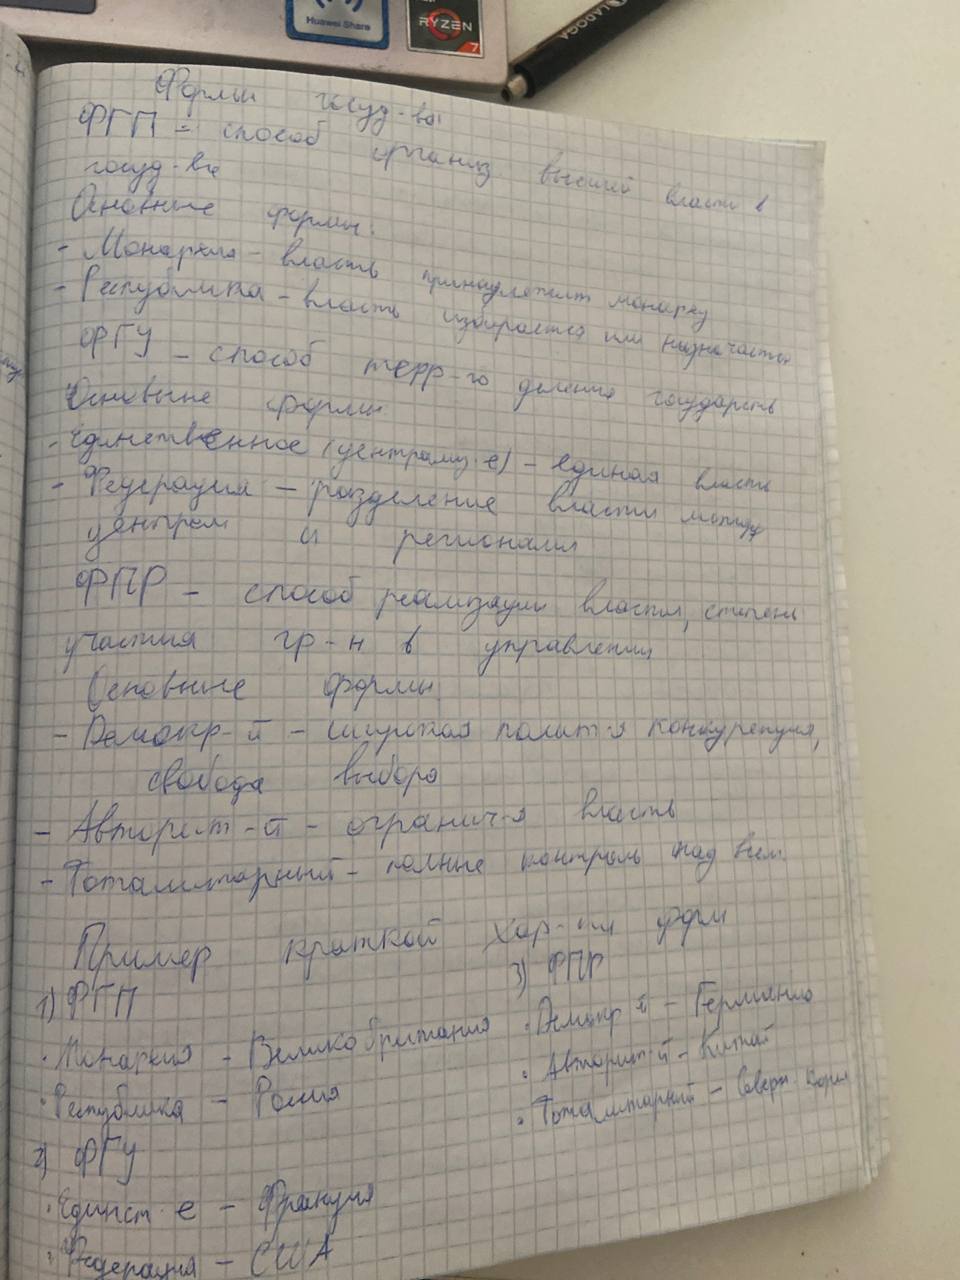 Huawei Share
RYZEN
7
LADOGA
Формы госуд-ва
ФГП - способ организ высшей власти в
госуд-ве
Основные формы.
- Монархия - власть принадлежит монарху
- Республика - власть избирается или назначается
ФГУ - способ терр-го деления государств
Основные формы
- Единственное (централиз-е) - единая власть
- Федерация - разделение власти между
центром и регионами
ФПР - способ реализации власти, степень
участия гр-н в управлении
Основные формы
- Демокр-й - широкая полит-я конкуренция,
свобода выбора
- Авторит-й - огранич-я власть
- Тоталитарный - полные контроль над всем
Пример краткой хар-ки форм
1) ФГП
· Монархия - Великобритания
· Республика - Россия
2) ФГУ
· Единст-е - Франция
· Федерация - США
3) ФПР
· Демокр-й - Германия
· Авторит-й - Китай
· Тоталитарный - Северн. Корея